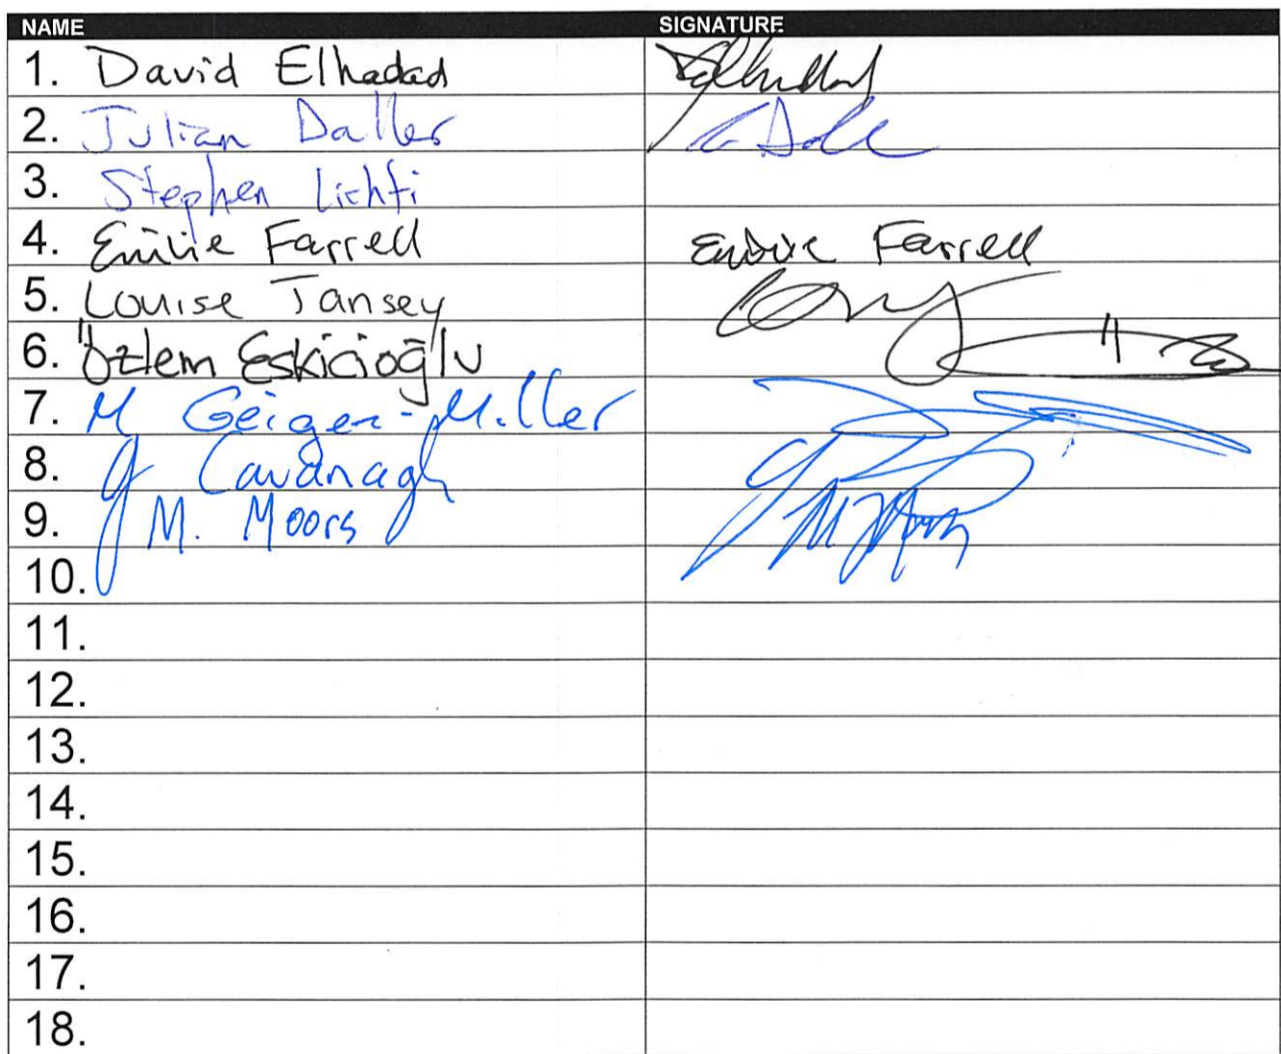 NAME SIGNATURE
1. David Elhadad
2. Julian Daller
3. Stephen Lichti
4. Emilie Farrell Emilie Farrell
5. Louise Tansey
6. Özlem Eskicioğlu
7. M Geiger-Miller
8. J Cavanagh
9. M. Moors
10.
11.
12.
13.
14.
15.
16.
17.
18.